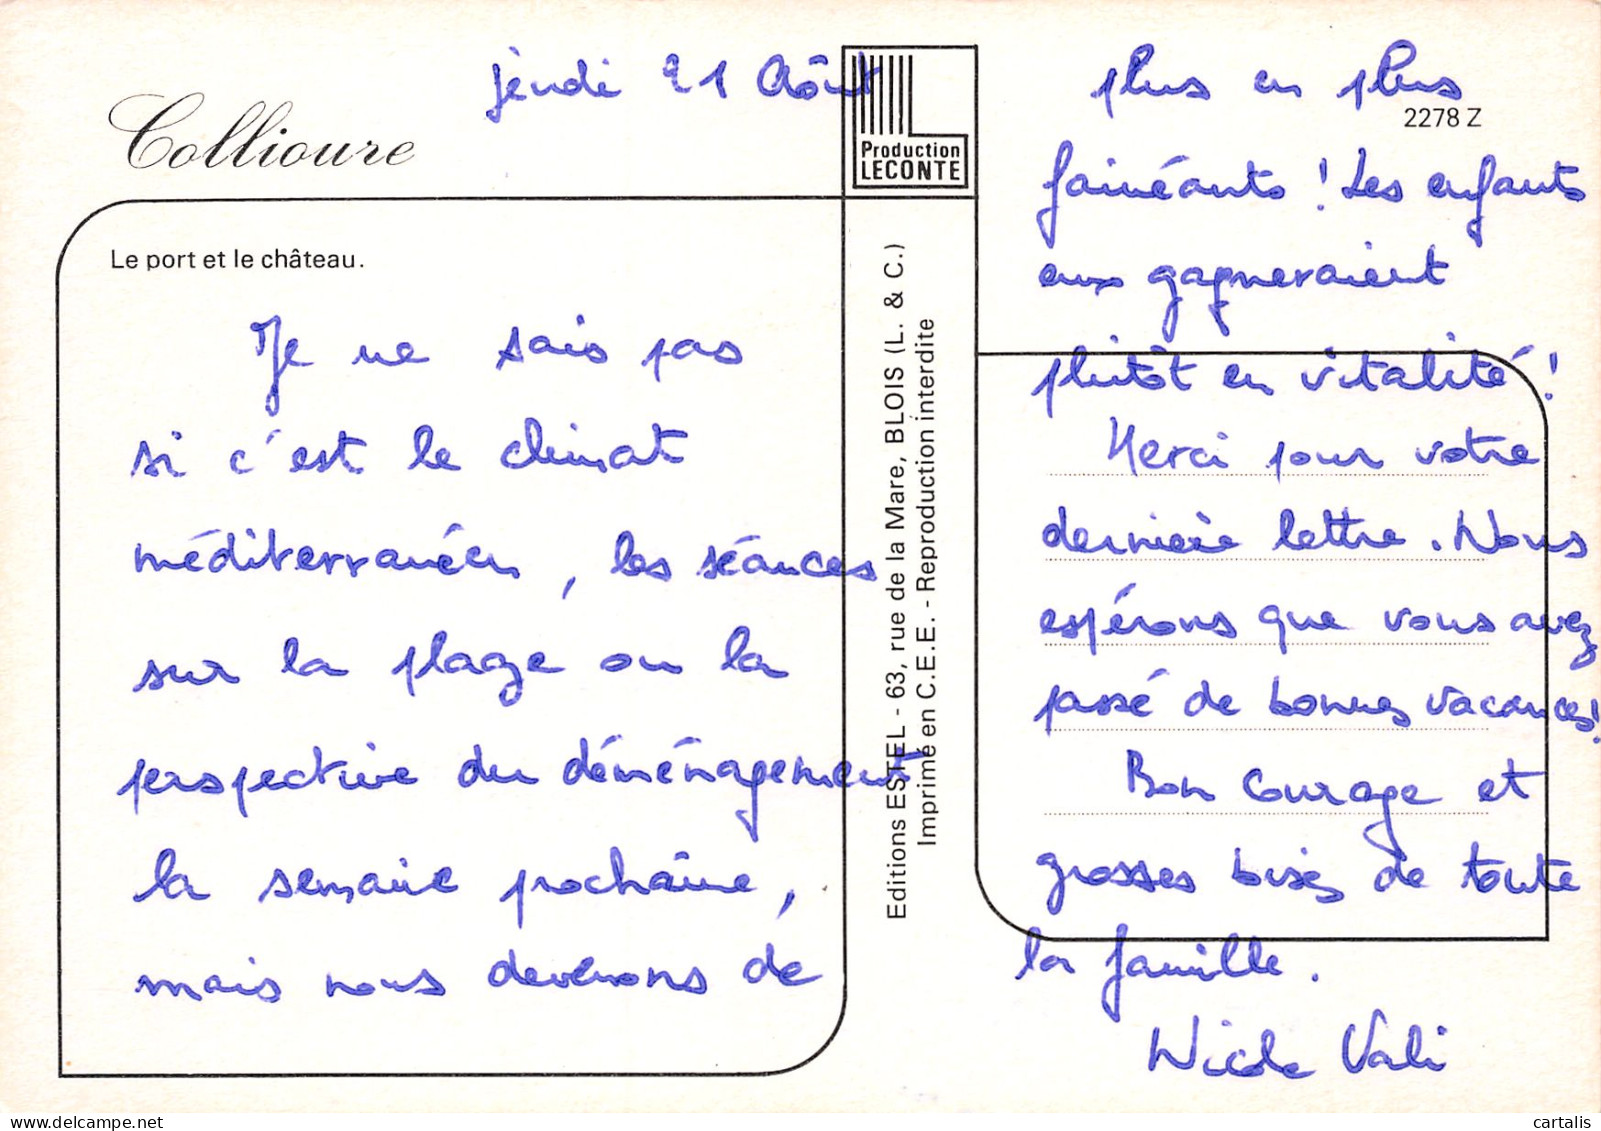 jeudi 21 Août
Collioure
Le port et le château.
Je ne sais pas
si c'est le climat
méditerranéen, les séances
sur la plage ou la
perspective du déménagement
la semaine prochaine,
mais nous devenons de
Production
LECONTE
Editions ESTEL - 63, rue de la Mare, BLOIS (L. & C.)
Imprimé en C.E.E. - Reproduction interdite
2278 Z
plus en plus
fainéants ! Les enfants
eux gagneraient
plutôt en vitalité !
Merci pour votre
dernière lettre. Nous
espérons que vous avez
passé de bonnes vacances!
Bon courage et
grosses bises de toute
la famille.
Nicole Vali
cartalis